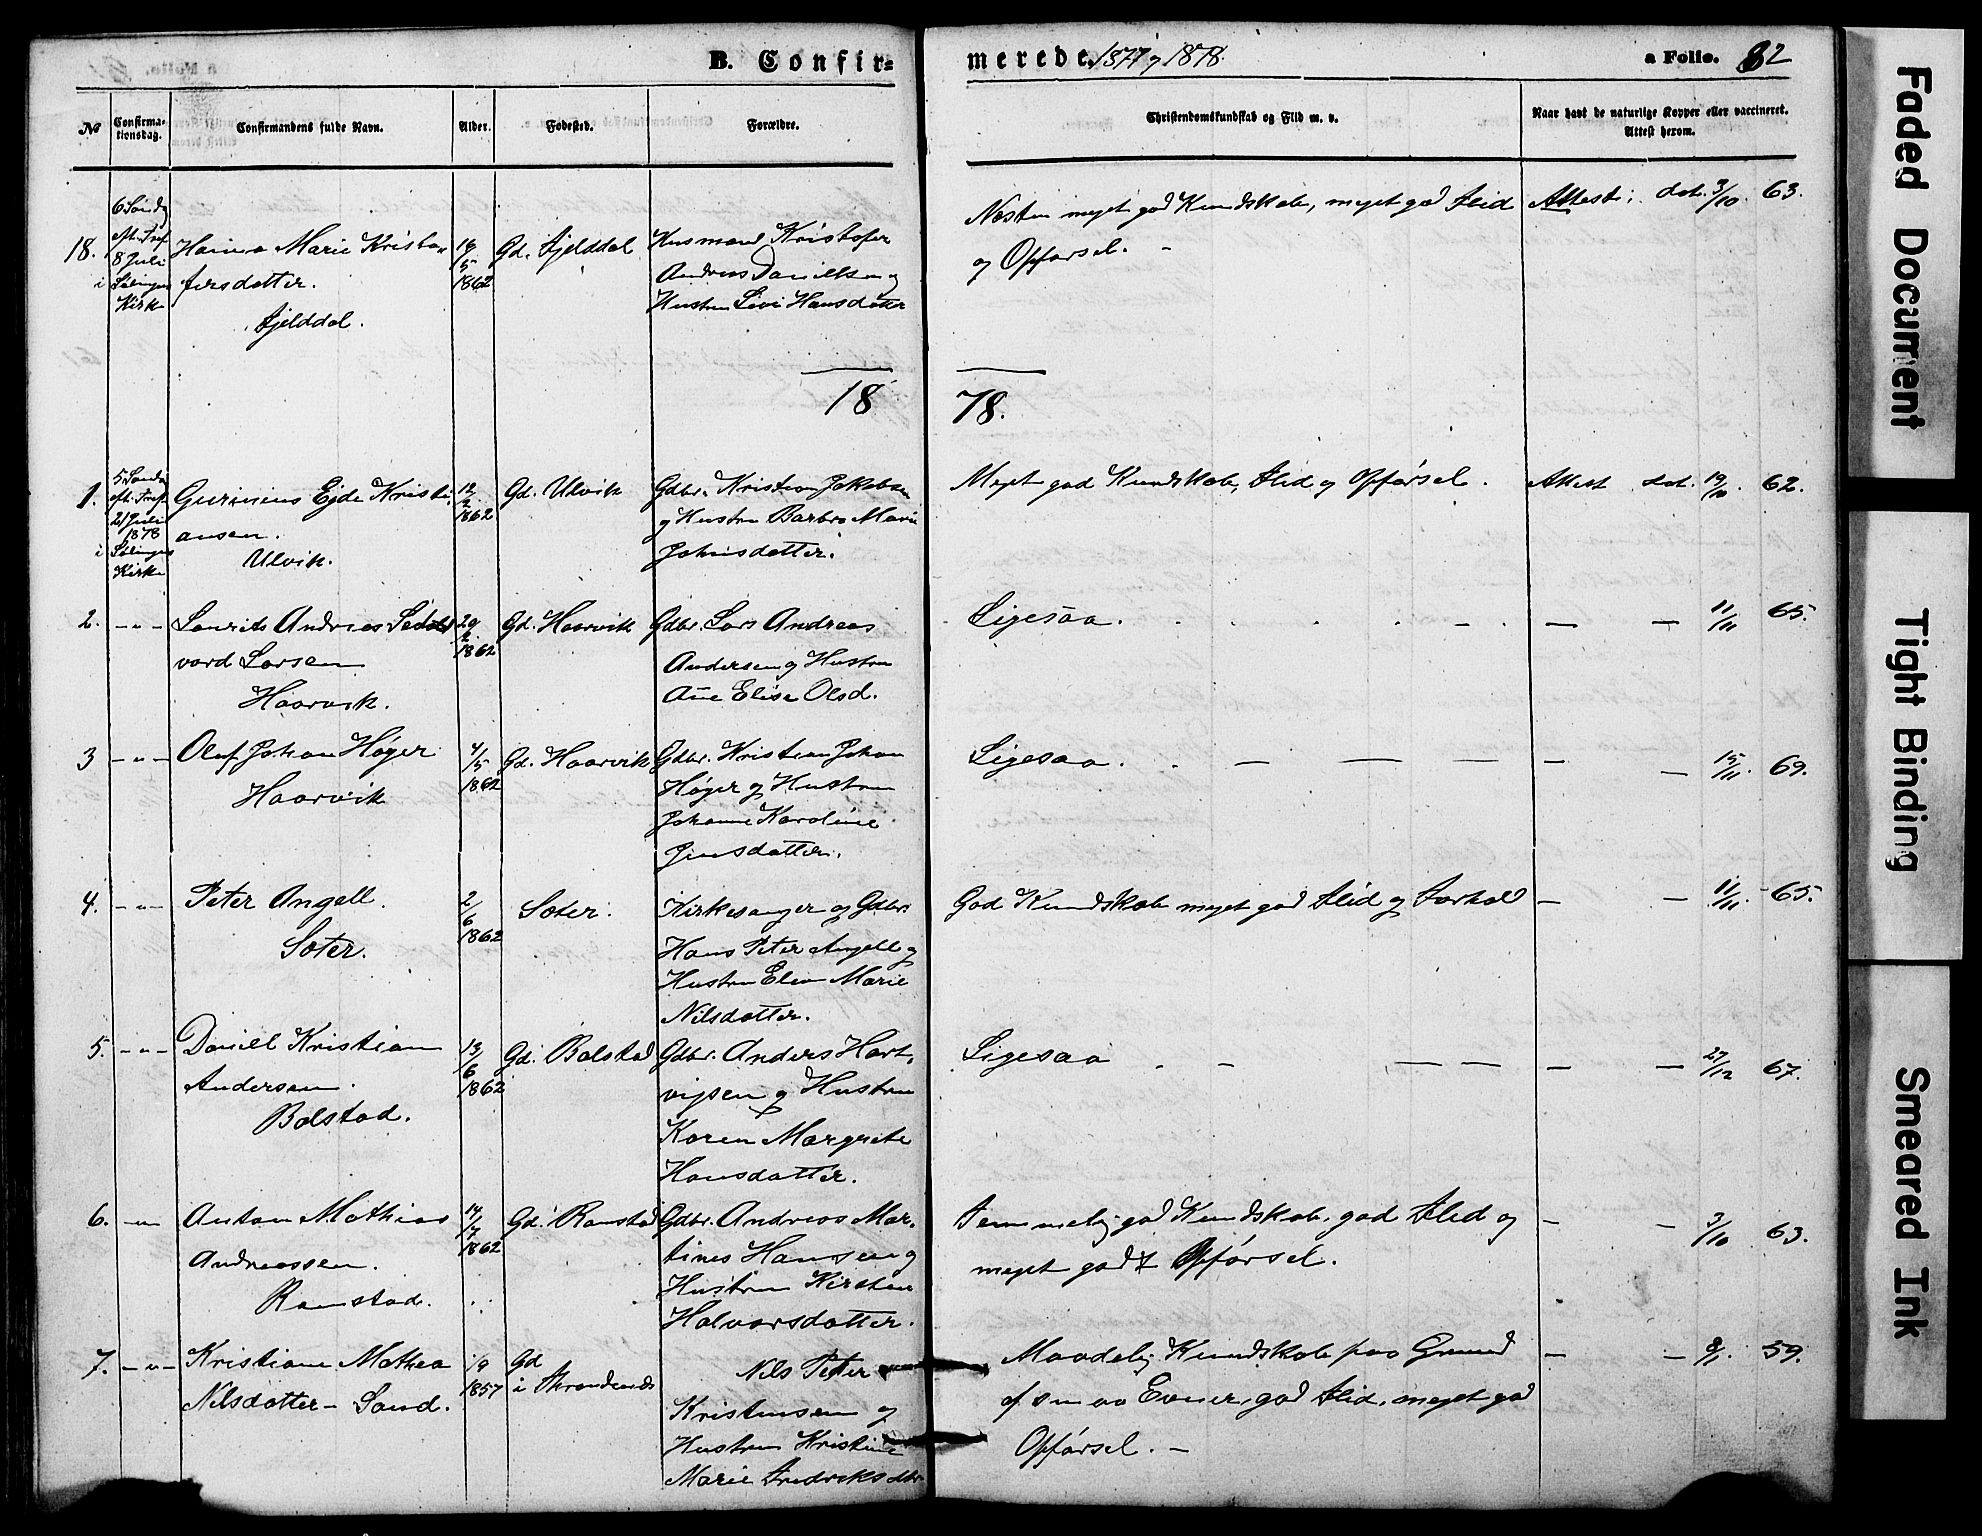 B. Confir=
merede. 1877 og 1878.
a Folio. 82
No
Confirma-
tionsdag.
Confirmandens fulde Navn.
Alder.
Fødested.
Forældre.
Christendomskundskab og Flid m. v.
Naar havt de naturlige Kopper eller vaccineret.
Attest herom.
18.
6 Sønd
eft. Tref
8 Juli
i
Kirke
Marie Kristo
fersdatter.
Fjelddal.
19/5
1862
Gd. Fjelddal
Husmand Kristofer
Andreas Danielsen og
Hustru Livi Hansdatter
Næsten meget god Kundskab, meget god Flid
og Opførsel. -
Attest: dat. 3/10. 63.
18
78.
1.
5 Sønd
eft. Tref.
21 Juli
1878
i
Kirke
Ejde Kristi
ansen.
Ulvik.
12/2
1862
Gd. Ulvik
Gdbr. Kristian Jakobsen
og Hustru Barbro Marie
Johnsdatter.
Meget god Kundskab, Flid og Opførsel.
Attest dat. 19/10. 62.
2. - " -
Laurits Andreas
vard Larsen
Haarvik.
29/2
1862
Gd. Haarvik
Gdbr. Lars Andreas
Andersen og Hustru
Ane Elise Olsd.
Ligesaa. — —
11/11 65.
3 - " -
Oluf Johan Høyer
Haarvik
4/5
1862
Gd. Haarvik
Gdbr. Kristian Johan
Høyer og Hustru
Johanne Karoline
Jensdatter.
Ligesaa. — — — — —
15/11. 69.
4. - " -
Peter Angell.
Sæter.
2/6
1862
Sæter.
Kirkesanger og Gdbr.
Hans Peter Angell og
Hustru Elen Marie
Nilsdatter.
God Kundskab meget god Flid og Forhold — —
11/11. 65.
5. - " -
Daniel Kristian
Andersen.
Bolstad.
13/6
1862
Gd. Bolstad
Gdbr. Anders Hart,
vigsen og Hustru
Karen Margrete
Hansdatter.
Ligesaa — — — — —
27/12 67.
6. - " -
Anton Mathias
Andreassen.
Ramstad.
14/7
1862
Gd. Ramstad
Gdbr. Andreas Mar,
tines Hansen og
Hustru Kirsten
Halvorsdatter.
Temmelig god Kundskab, god Flid og
meget god Opførsel.
— — 3/10 63.
7. - " -
Kristiane Mathea
Nilsdatter - Sand.
1/9
1857
Gd
i
Nils Peter
Kristensen og
Hustru Kristine
Marie Fredriksdtr
Maadelig Kundskab paa Grund
af smaa Evner, god Flid, meget god
Opførsel. -
— — 59.
Faded Document
Tight Binding
Smeared Ink